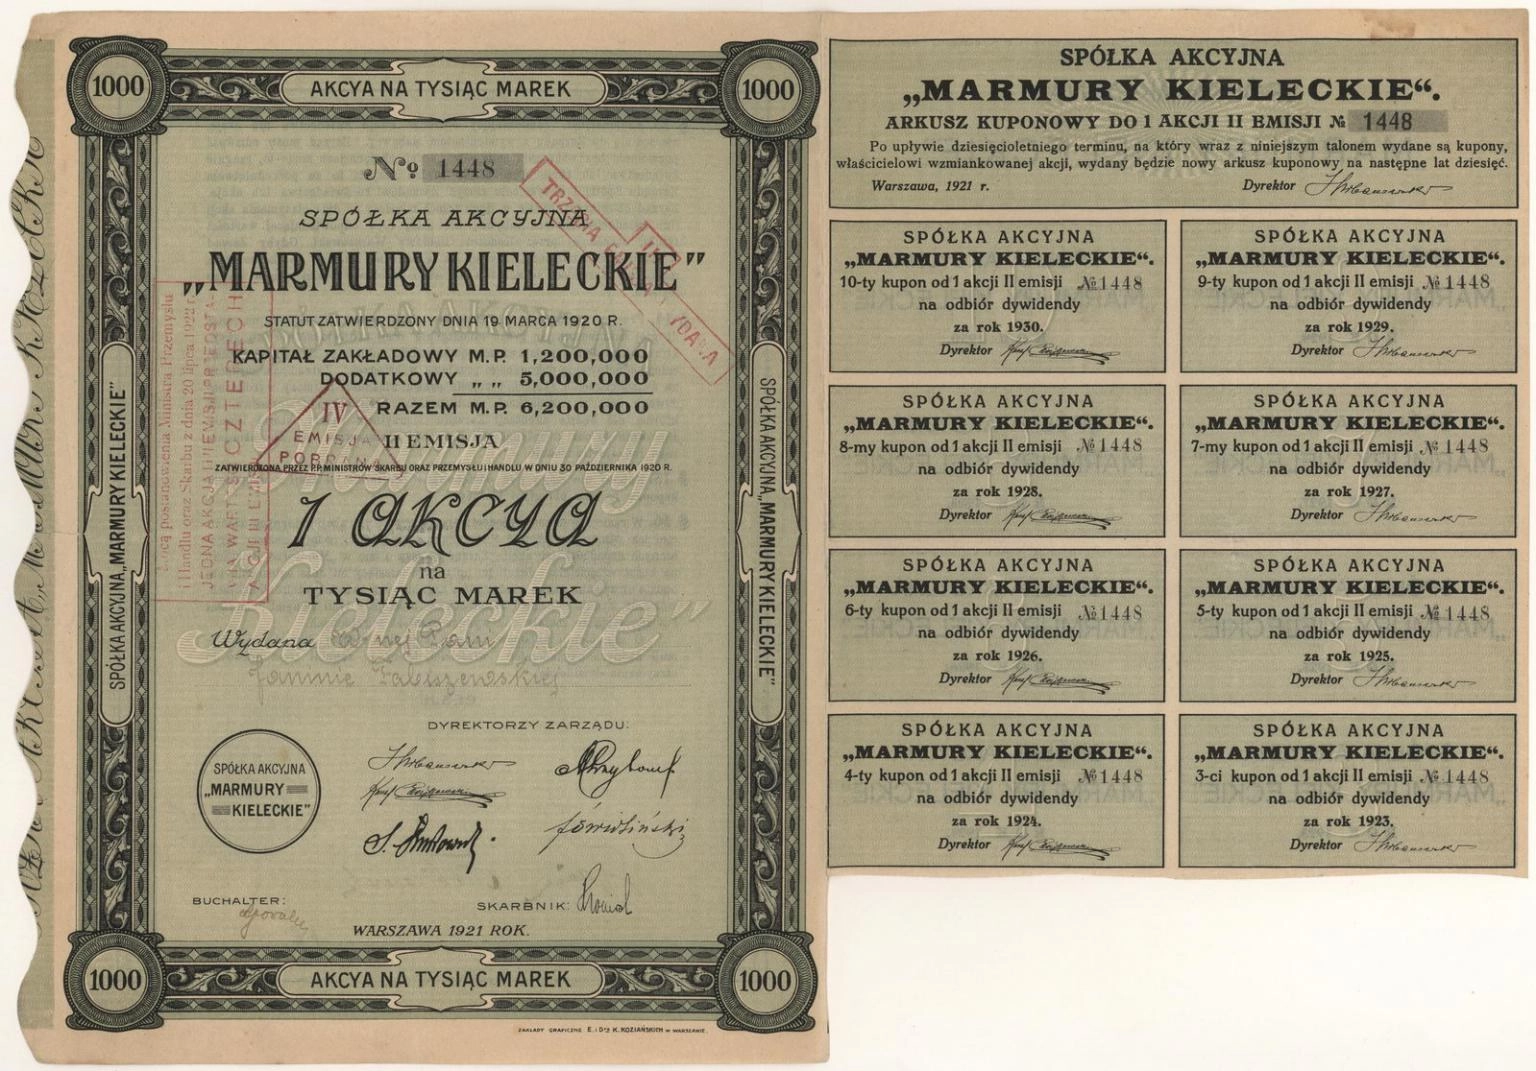 1000
AKCYA NA TYSIĄC MAREK
1000
№ 1448
SPÓŁKA AKCYJNA
„MARMURY KIELECKIE”
STATUT ZATWIERDZONY DNIA 19 MARCA 1920 R.
KAPITAŁ ZAKŁADOWY M.P. 1,200,000
DODATKOWY „ „ 5,000,000
RAZEM M.P. 6,200,000
II EMISJA
ZATWIERDZONA PRZEZ P.P. MINISTRÓW SKARBU ORAZ PRZEMYSŁU I HANDLU W DNIU 30 PAŹDZIERNIKA 1920 R.
1 AKCYA
na
TYSIĄC MAREK
Marmury
Kieleckie”
Wydana
DYREKTORZY ZARZĄDU:
SPÓŁKA AKCYJNA
„MARMURY
KIELECKIE”
BUCHALTER:
SKARBNIK:
WARSZAWA 1921 ROK.
1000
AKCYA NA TYSIĄC MAREK
1000
SPÓŁKA AKCYJNA „MARMURY KIELECKIE”
SPÓŁKA AKCYJNA „MARMURY KIELECKIE”
ZAKŁADY GRAFICZNE E. i Dra K. KOZIAŃSKICH w WARSZAWIE.
IV
EMISJA
POBRANA
postanowienia Ministra Przemysłu
i Handlu oraz Skarbu z dnia 20 lipca 1922 r.
JEDNA AKCJA
CZTERECH
SPÓŁKA AKCYJNA
„MARMURY KIELECKIE“.
ARKUSZ KUPONOWY DO 1 AKCJI II EMISJI № 1448
Po upływie dziesięcioletniego terminu, na który wraz z niniejszym talonem wydane są kupony,
właścicielowi wzmiankowanej akcji, wydany będzie nowy arkusz kuponowy na następne lat dziesięć.
Warszawa, 1921 r. Dyrektor
SPÓŁKA AKCYJNA
„MARMURY KIELECKIE“.
10-ty kupon od 1 akcji II emisji № 1448
na odbiór dywidendy
za rok 1930.
Dyrektor
SPÓŁKA AKCYJNA
„MARMURY KIELECKIE“.
9-ty kupon od 1 akcji II emisji № 1448
na odbiór dywidendy
za rok 1929.
Dyrektor
SPÓŁKA AKCYJNA
„MARMURY KIELECKIE“.
8-my kupon od 1 akcji II emisji № 1448
na odbiór dywidendy
za rok 1928.
Dyrektor
SPÓŁKA AKCYJNA
„MARMURY KIELECKIE“.
7-my kupon od 1 akcji II emisji № 1448
na odbiór dywidendy
za rok 1927.
Dyrektor
SPÓŁKA AKCYJNA
„MARMURY KIELECKIE“.
6-ty kupon od 1 akcji II emisji № 1448
na odbiór dywidendy
za rok 1926.
Dyrektor
SPÓŁKA AKCYJNA
„MARMURY KIELECKIE“.
5-ty kupon od 1 akcji II emisji № 1448
na odbiór dywidendy
za rok 1925.
Dyrektor
SPÓŁKA AKCYJNA
„MARMURY KIELECKIE“.
4-ty kupon od 1 akcji II emisji № 1448
na odbiór dywidendy
za rok 1924.
Dyrektor
SPÓŁKA AKCYJNA
„MARMURY KIELECKIE“.
3-ci kupon od 1 akcji II emisji № 1448
na odbiór dywidendy
za rok 1923.
Dyrektor